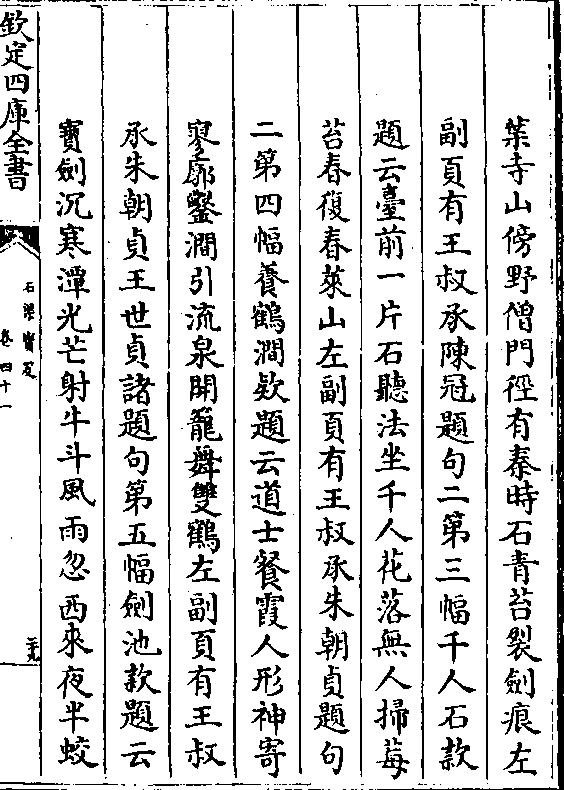 葉寺山傍野僧門徑有秦時石青苔裂劍痕左
副頁有王叔承陳冠題句二第三幅千人石款
題云臺前一片石聽法坐千人花落無人掃莓
苔春復春萊山左副頁有王叔承朱朝貞題句
二第四幅養鶴澗欵題云道士餐霞人形神寄
寥廓鑿澗引流泉開籠舞雙鶴左副頁有王叔
承朱朝貞王世貞諸題句第五幅劍池款題云
寶劍沉寒潭光芒射牛斗風雨忽西來夜半蛟
欽定四庫全書
石渠寶笈
卷四十一
二九